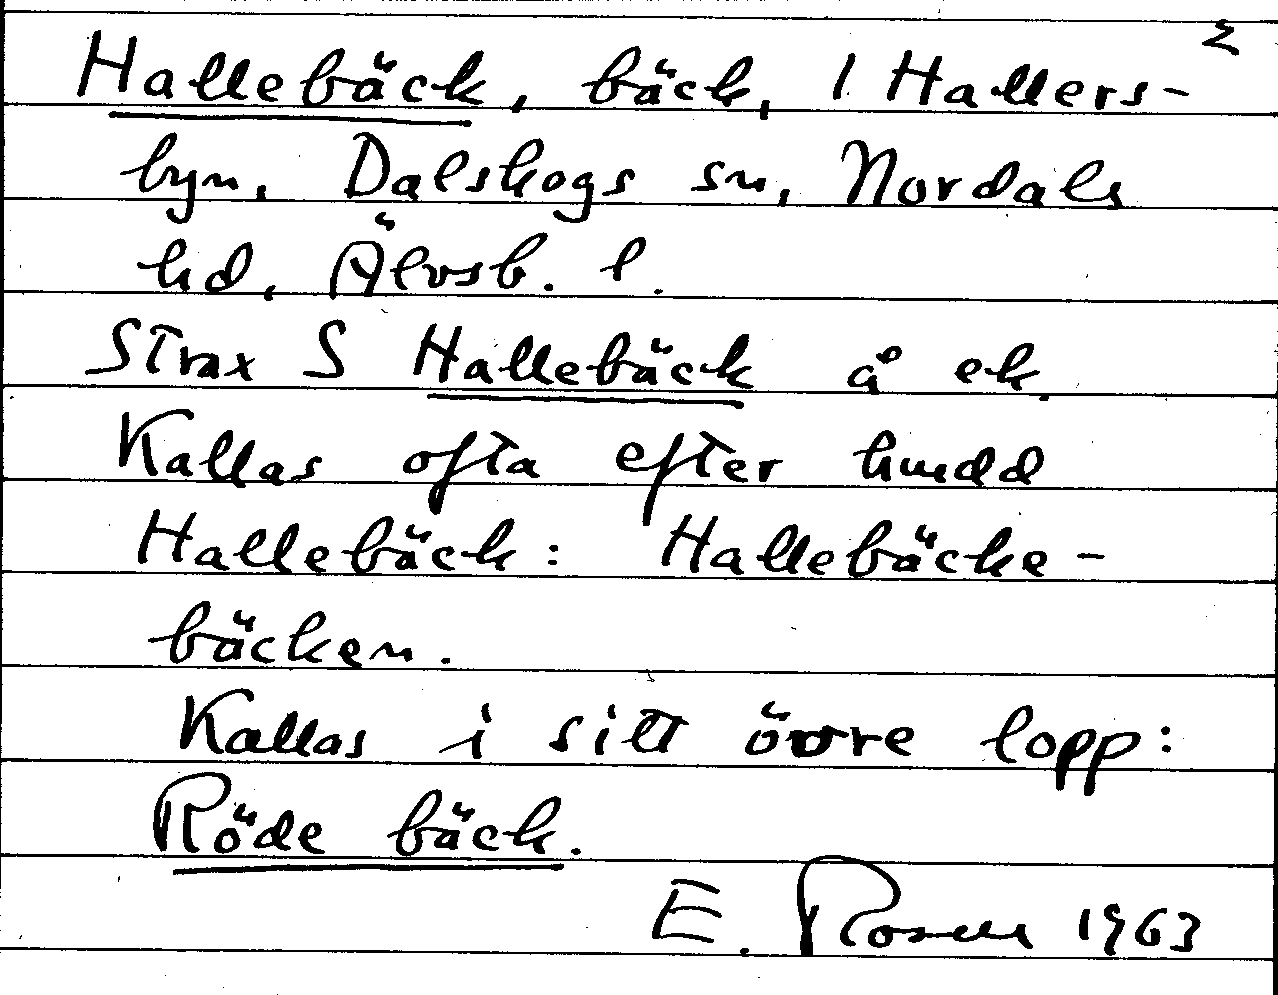 Hallebäck, bäck, 1 Hallers-
byn, Dalskogs sn, Nordals
hd, Älvsb. l.
Strax S Hallebäck å ek.
Kallas ofta efter humdd
Hallebäck: Hallebäcke-
bäcken.
Kallas i sitt övre lopp:
Röde bäck.
E. Rosell 1963